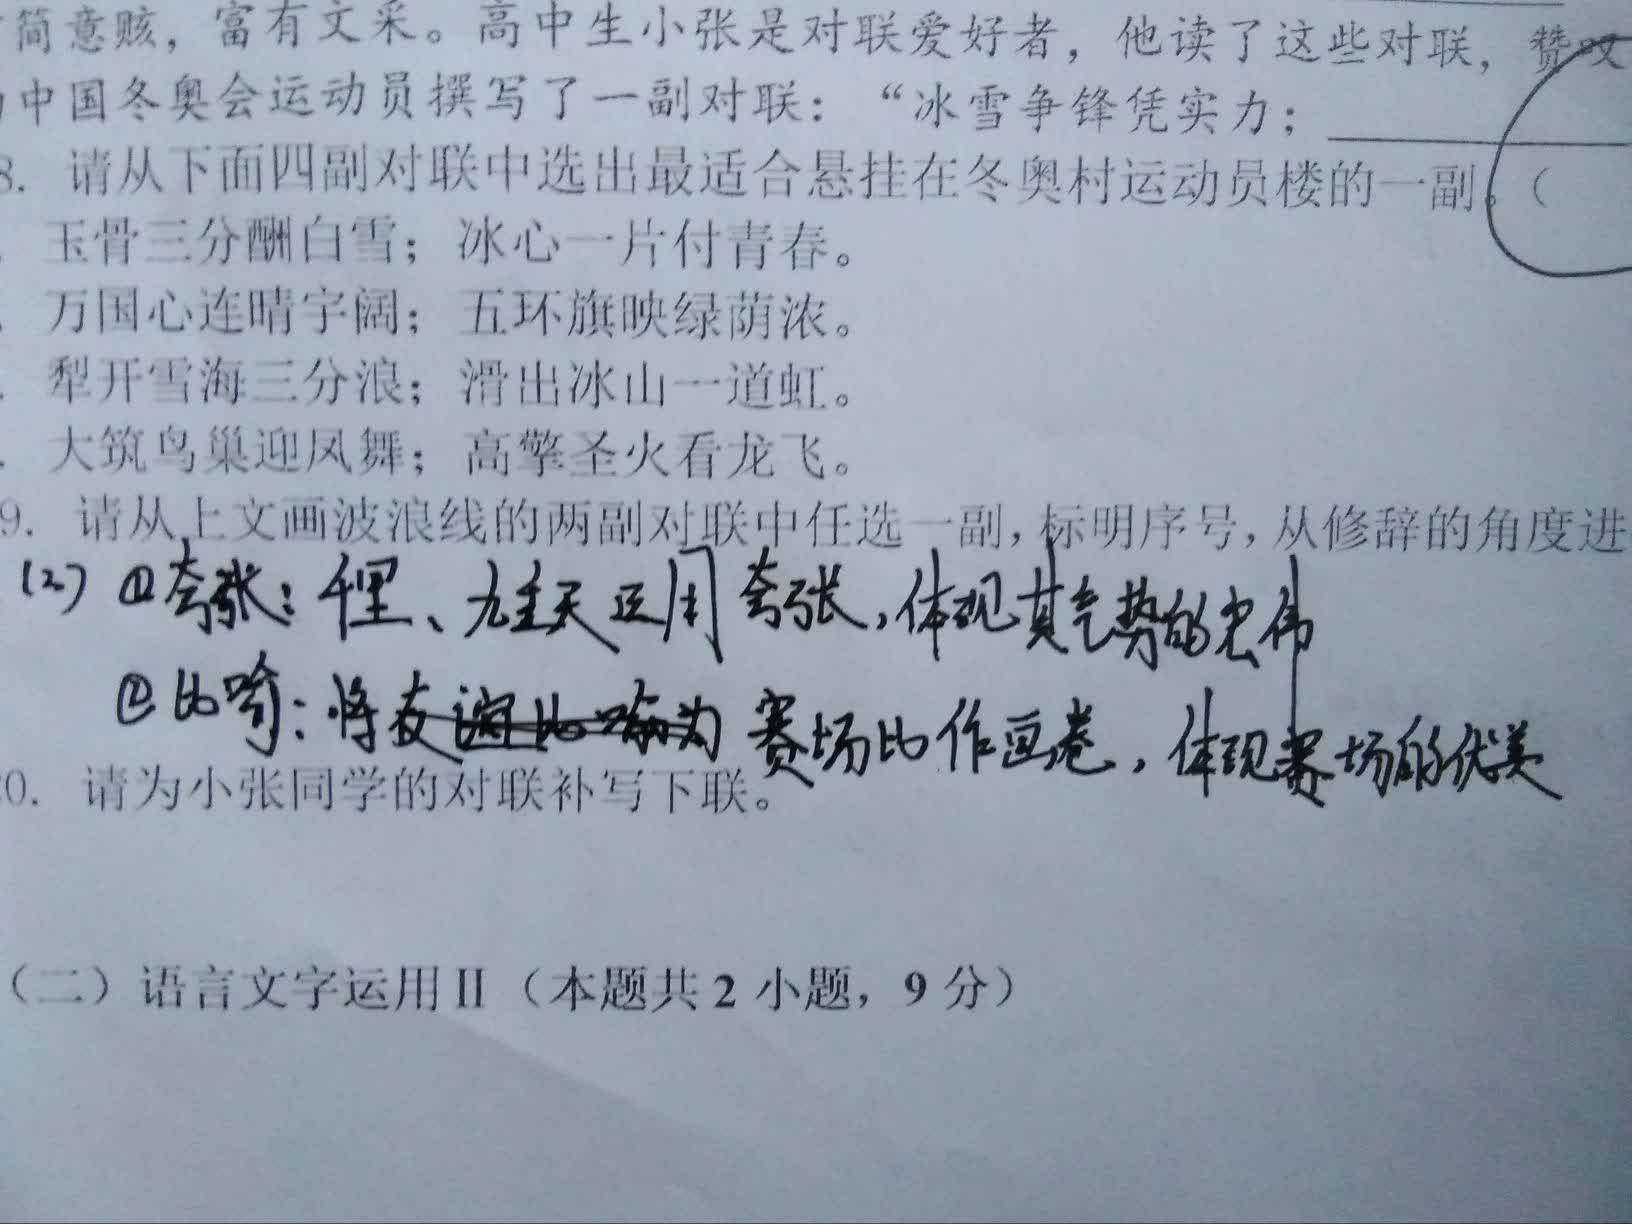 简意赅，富有文采。高中生小张是对联爱好者，他读了这些对联，赞叹
中国冬奥会运动员撰写了一副对联：“冰雪争锋凭实力；
8. 请从下面四副对联中选出最适合悬挂在冬奥村运动员楼的一副。（
玉骨三分酬白雪；冰心一片付青春。
万国心连晴宇阔；五环旗映绿荫浓。
犁开雪海三分浪；滑出冰山一道虹。
大筑鸟巢迎凤舞；高擎圣火看龙飞。
9. 请从上文画波浪线的两副对联中任选一副，标明序号，从修辞的角度进
(2) ①夸张：千里、九重天运用夸张，体现其气势的宏伟
②比喻：将赛场比作画卷，体现赛场的优美
0. 请为小张同学的对联补写下联。
（二）语言文字运用Ⅱ（本题共 2 小题，9 分）